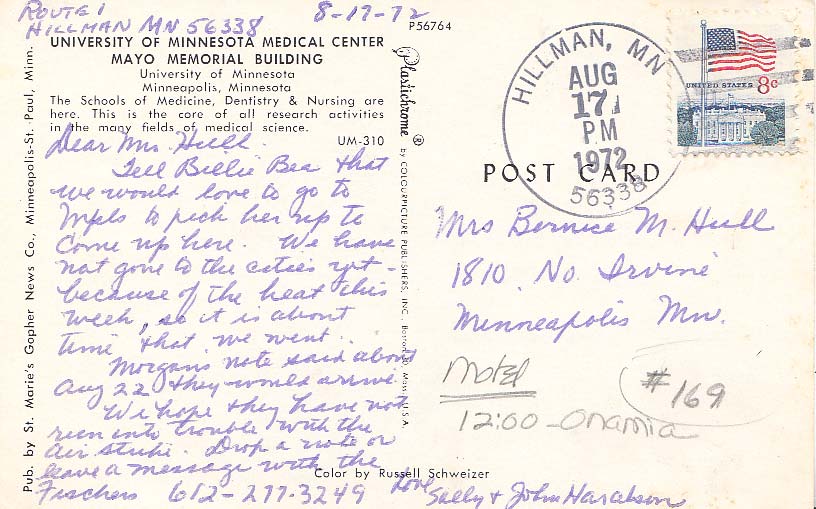 Route 1
Hillman MN 56338
8-17-72
P56764
UNIVERSITY OF MINNESOTA MEDICAL CENTER
MAYO MEMORIAL BUILDING
University of Minnesota
Minneapolis, Minnesota
The Schools of Medicine, Dentistry & Nursing are
here. This is the core of all research activities
in the many fields of medical science.
UM-310
Dear Mrs. Hull.
Tell Billie Bea that
we would love to go to
Mpls to pick her up to
come up here. We have
not gone to the cities yet -
because of the heat this
week, so it is about
time that we went.
Morgans note said about
Aug 22 they would arrive.
We hope they have not
run into trouble with the
air strike. Drop a note or
leave a message with the
Fischers 612-277-3249
Love
Sally & John Haralson
Color by Russell Schweizer
Pub. by St. Marie's Gopher News Co., Minneapolis-St. Paul, Minn.
Plastichrome ® by COLOURPICTURE PUBLISHERS, INC., Boston, Mass. U.S.A.
HILLMAN, MN
AUG
17
PM
1972
56338
UNITED STATES 8c
POST CARD
Mrs Bernice M. Hull
1810 No. Irvine
Minneapolis Mn.
Motel
#169
12:00 - Onamia